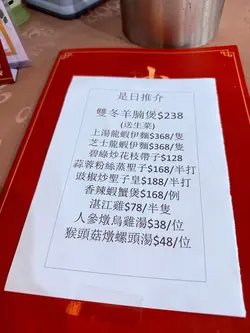 是日推介
雙冬羊腩煲$238
(送生菜)
上湯龍蝦伊麵$368/隻
芝士龍蝦伊麵$368/隻
碧綠炒花枝帶子$128
蒜蓉粉絲蒸聖子$168/半打
豉椒炒聖子皇$188/半打
香辣蝦蟹煲$168/例
湛江雞$78/半隻
人參燉烏雞湯$38/位
猴頭菇燉螺頭湯$48/位